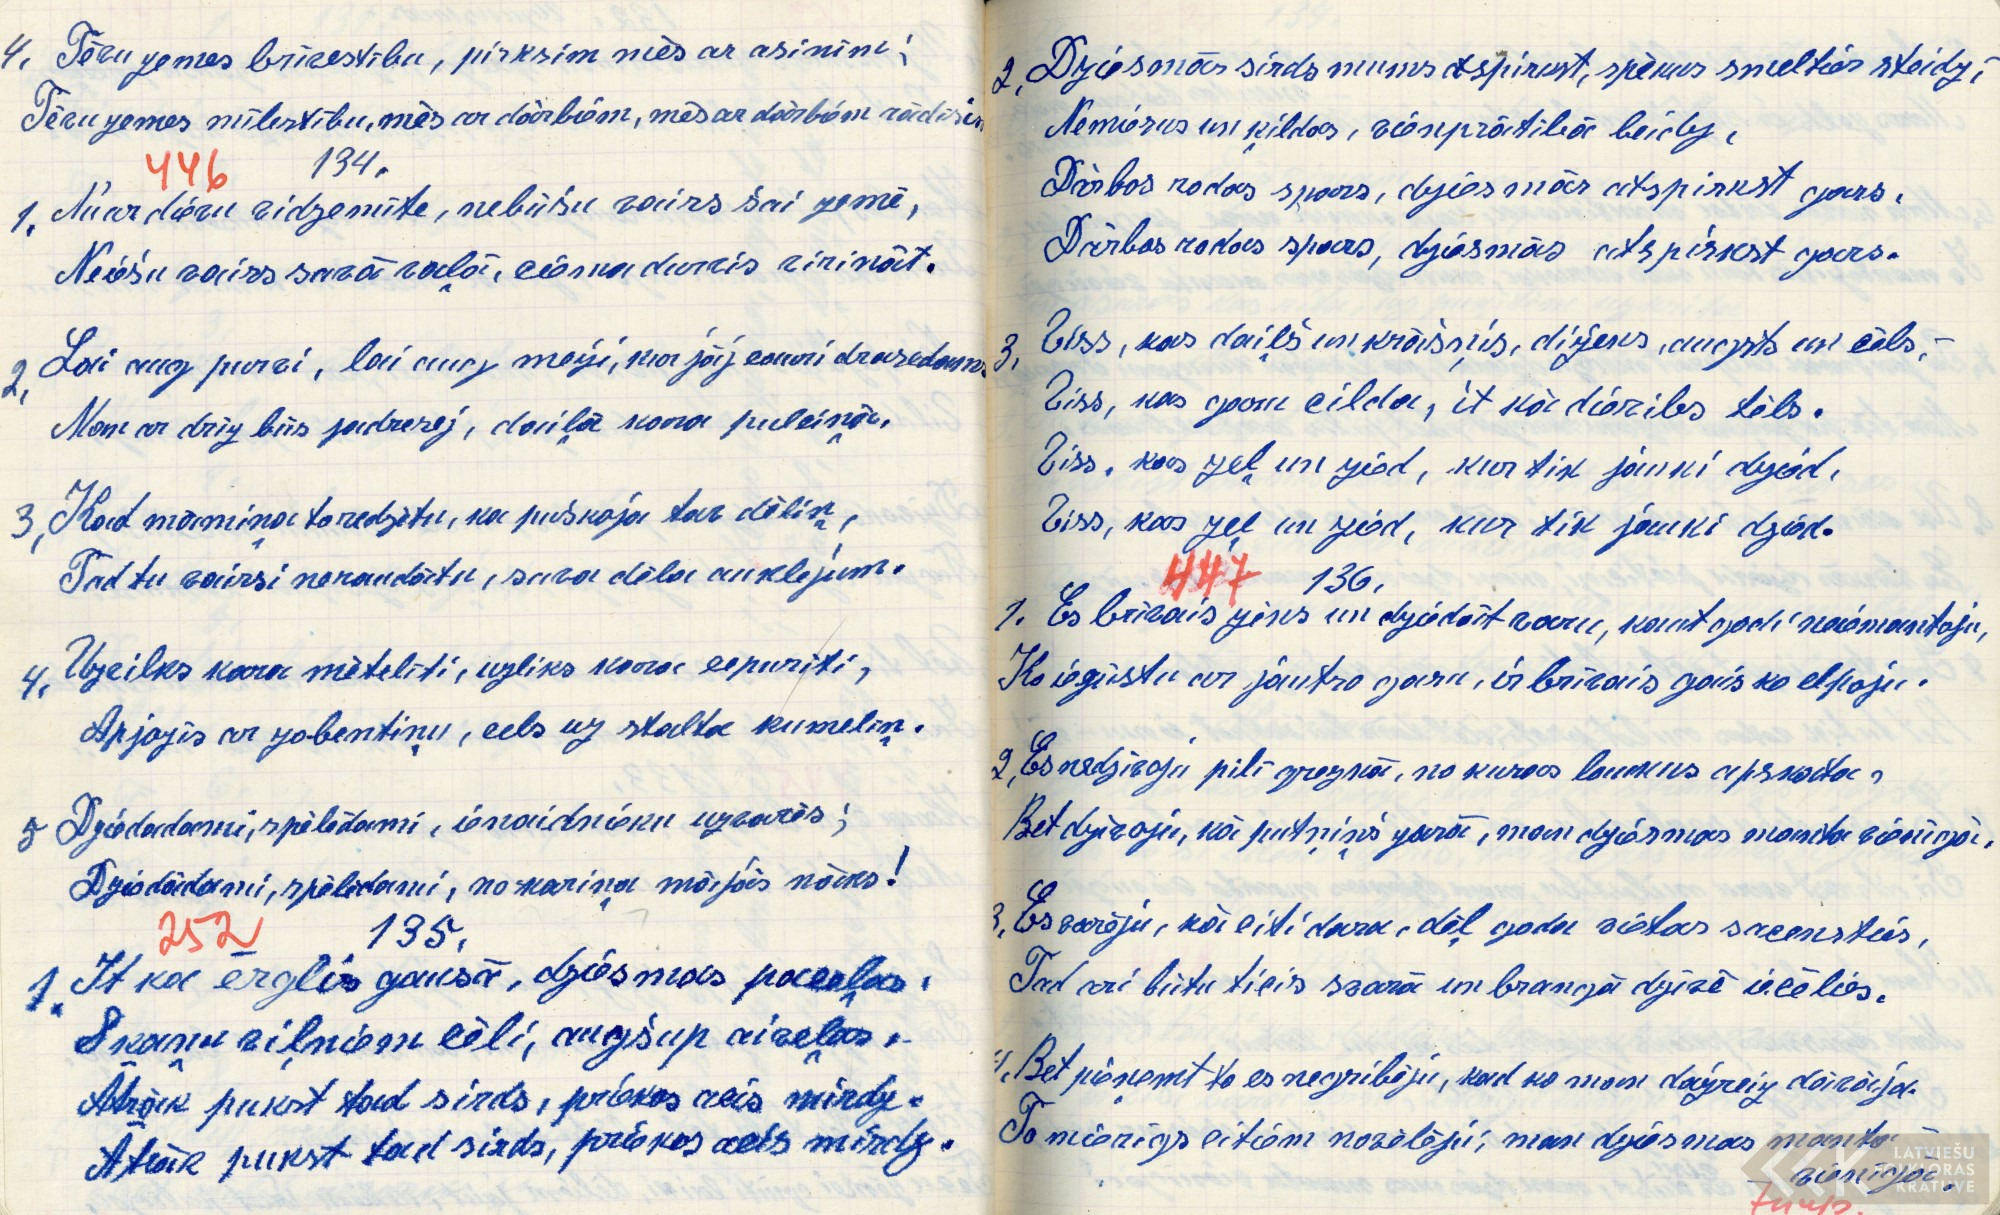 4. Tēvu zemes brīvestību, pirksim mēs ar asinīm;
Tēvu zemes mīlestību, mēs ar dārbiem, mēs ar dārbiem rādīsim
446 134.
1. Nu ar dievu vidzemīte, nebūšu vairs šai zemē,
Neiešu vairs savā vaļā, ciema durvis virināt.
2. Lai aug purvi, lai aug meži, kur jāj cauri drasedams
Man ar drīz būs jadresej, daiļā kara pulciņā.
3. Kad māmiņa to redzētu, ka puškoja tav dēliņ,
Tad tu vairsi neraudātu, sava dēla auklējum.
4. Uzvilks kara mētelīti, uzliks kara cepurīti,
Apjozīs ar zobentiņu, cels uz stalta kumeliņ.
5 Dziedadami, spēlēdami, ienaidnieku uzvarēs;
Dziedādami, spēlēdami, no kariņa mājās nāks!
252 135.
1. It kā ērglis gaisā, dziesmas paceļas.
Skaņu viļņiem cēli, augšup aizveļas.
Ātrāk pukst tad sirds, priekos acis mirdz.
Ātrāk pukst tad sirds, priekos acis mirdz.
2. Dziesmās sirds mums atspirkst, spēkus smelties steidz,
Nemierus un ķildas, vienprātībā beidz.
Dārbos rodas spars, dziesmās atspirkst gars.
Dārbos rodas spars, dziesmās atspirkst gars.
3. Viss, kas daiļš un krāšņis, dižens, augsts un cēls,
Viss, kas garu cilda, it kā dievības tēls.
Viss, kas zeļ un zied, kur tik jauki dzied,
Viss, kas zeļ un zied, kur tik jauki dzied.
447 136.
1. Es brīvais zēns un dziedāt varu, kaut gadi neiemantoju,
Ko iegūstu ar jautro garu, ir brīvais gais ko elpoju.
2. Es nedzīvoju pilī greznā, no kuras laukus apskata,
Bet dzīvoju, kā putniņš zarā, man dziesmas manta vienīgā.
3. Es varēju, kā citi dara, dēļ goda vietas sacensties,
Tad arī būtu ticis svarā un brangā dzīvē iecēlies.
4. Bet pieņemt to es negribēju, kad ko man dažreiz dāvāja.
To mierīgs citiem novēlēju, man dziesmas manta
vienīgā.
LATVIEŠU
FOLKLORAS
KRĀTUVE